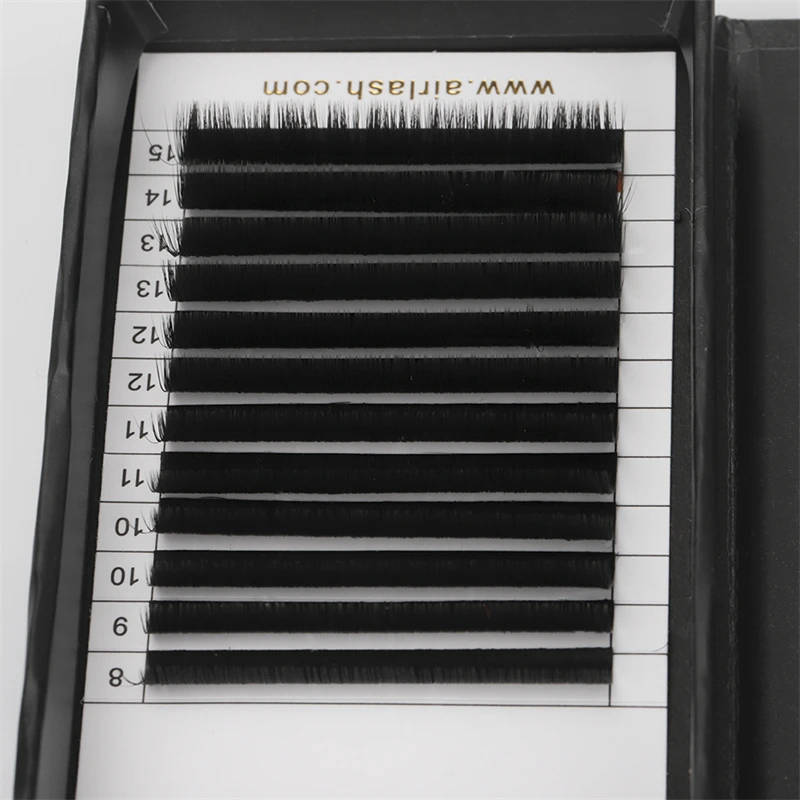 www.airlash.com
15
14
13
13
12
12
11
11
10
10
9
8